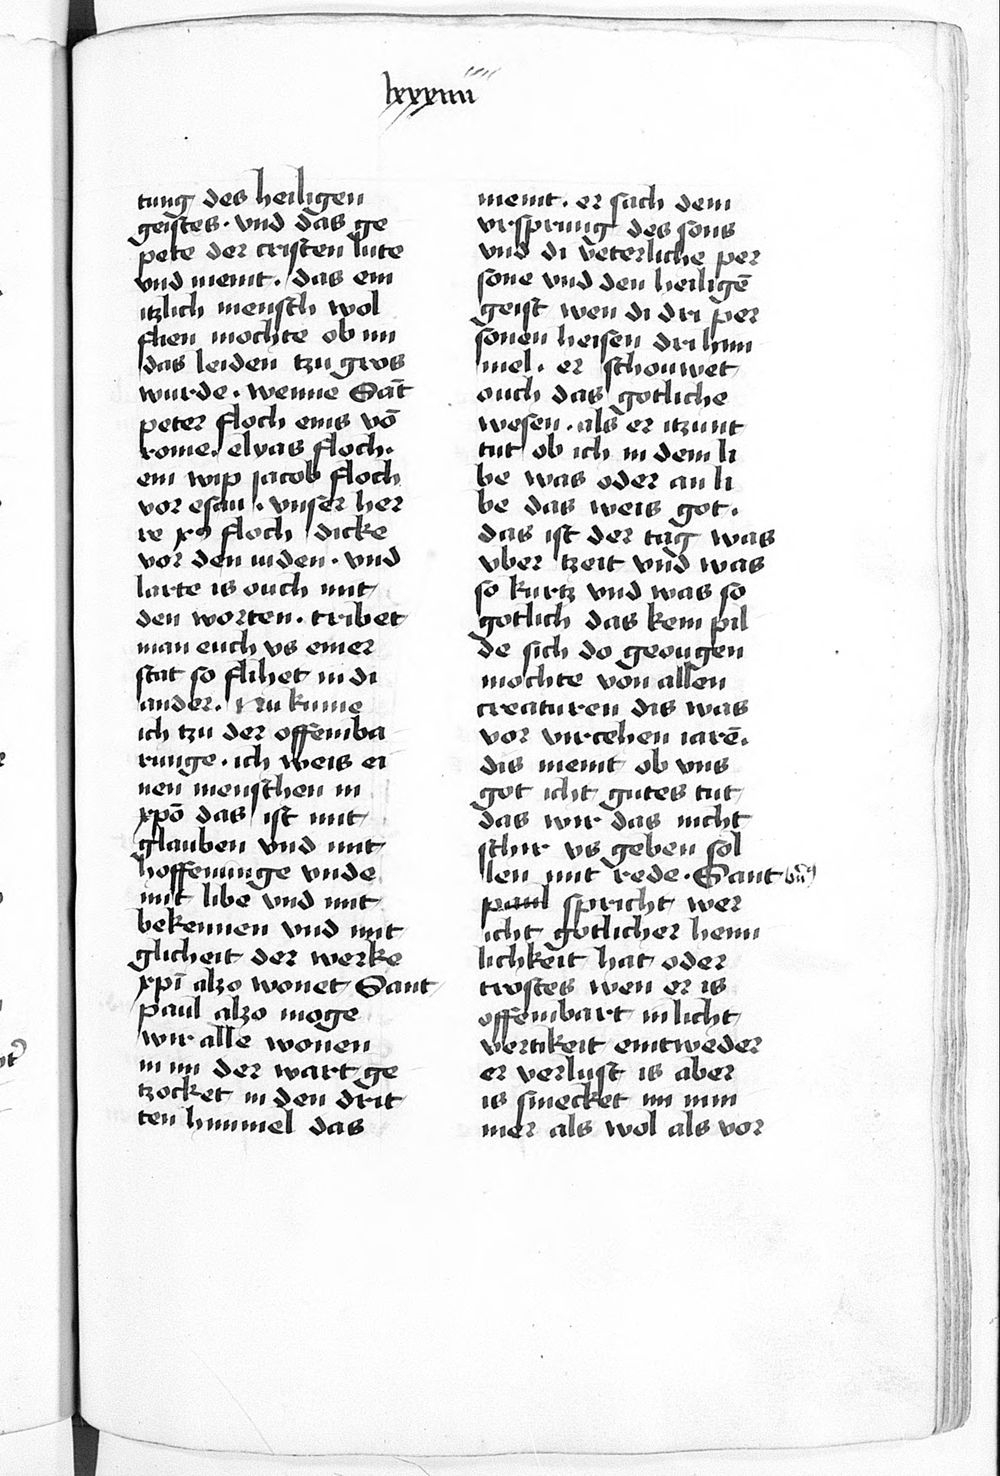 lxxxiiii
tung des heiligen
geistes · vnd das ge
pete der cristen lute
vnd meint · das ein
itzlich mensch wol
flien mochte ob im
das leiden tzu gros
wurde · wenne Sāt
peter floch eins vō
rome · elyas floch ·
ein wip jacob floch
vor esau · vnser her
re xp̄c floch dicke
vor den iuden · vnd
larte is ouch mit
den worten · tribet
man euch vs einer
stat so flihet in di
ander · Nu kume
ich tzu der offemba
runge · ich weis ei
nen menschen in
xpō das ist mit
glauben vnd mit
hoffenunge vnde
mit libe vnd mit
bekennen vnd mit
glicheit der werke
xpī alzo wonet Sant
paul alzo moge
wir alle wonen
in im der wart ge
tzocket in den drit
ten himmel das
meint · er sach dem
vrsprung des sons
vnd di veterliche per
sone vnd den heiligē
geist wen di dri per
sonen heisen dri him
mel · er schouwet
ouch das gotliche
wesen · als er itzunt
tut ob ich in dem li
be was oder an li
be das weis got ·
das ist der tag was
vber tzeit vnd was
so kurtz vnd was so
gotlich das kein pil
de sich do geougen
mochte von allen
creaturen dis was
vor vircehen iarē ·
dis meint ob vns
got icht gutes tut
das wir das nicht
schir vs geben sol
len mit rede · Sant
paul spricht wer
icht gotlicher heim
lichkeit hat oder
trostes wen er is
offembart in licht
vertikeit eintweder
er verlust is aber
is smecket im nim
mer als wol als vor